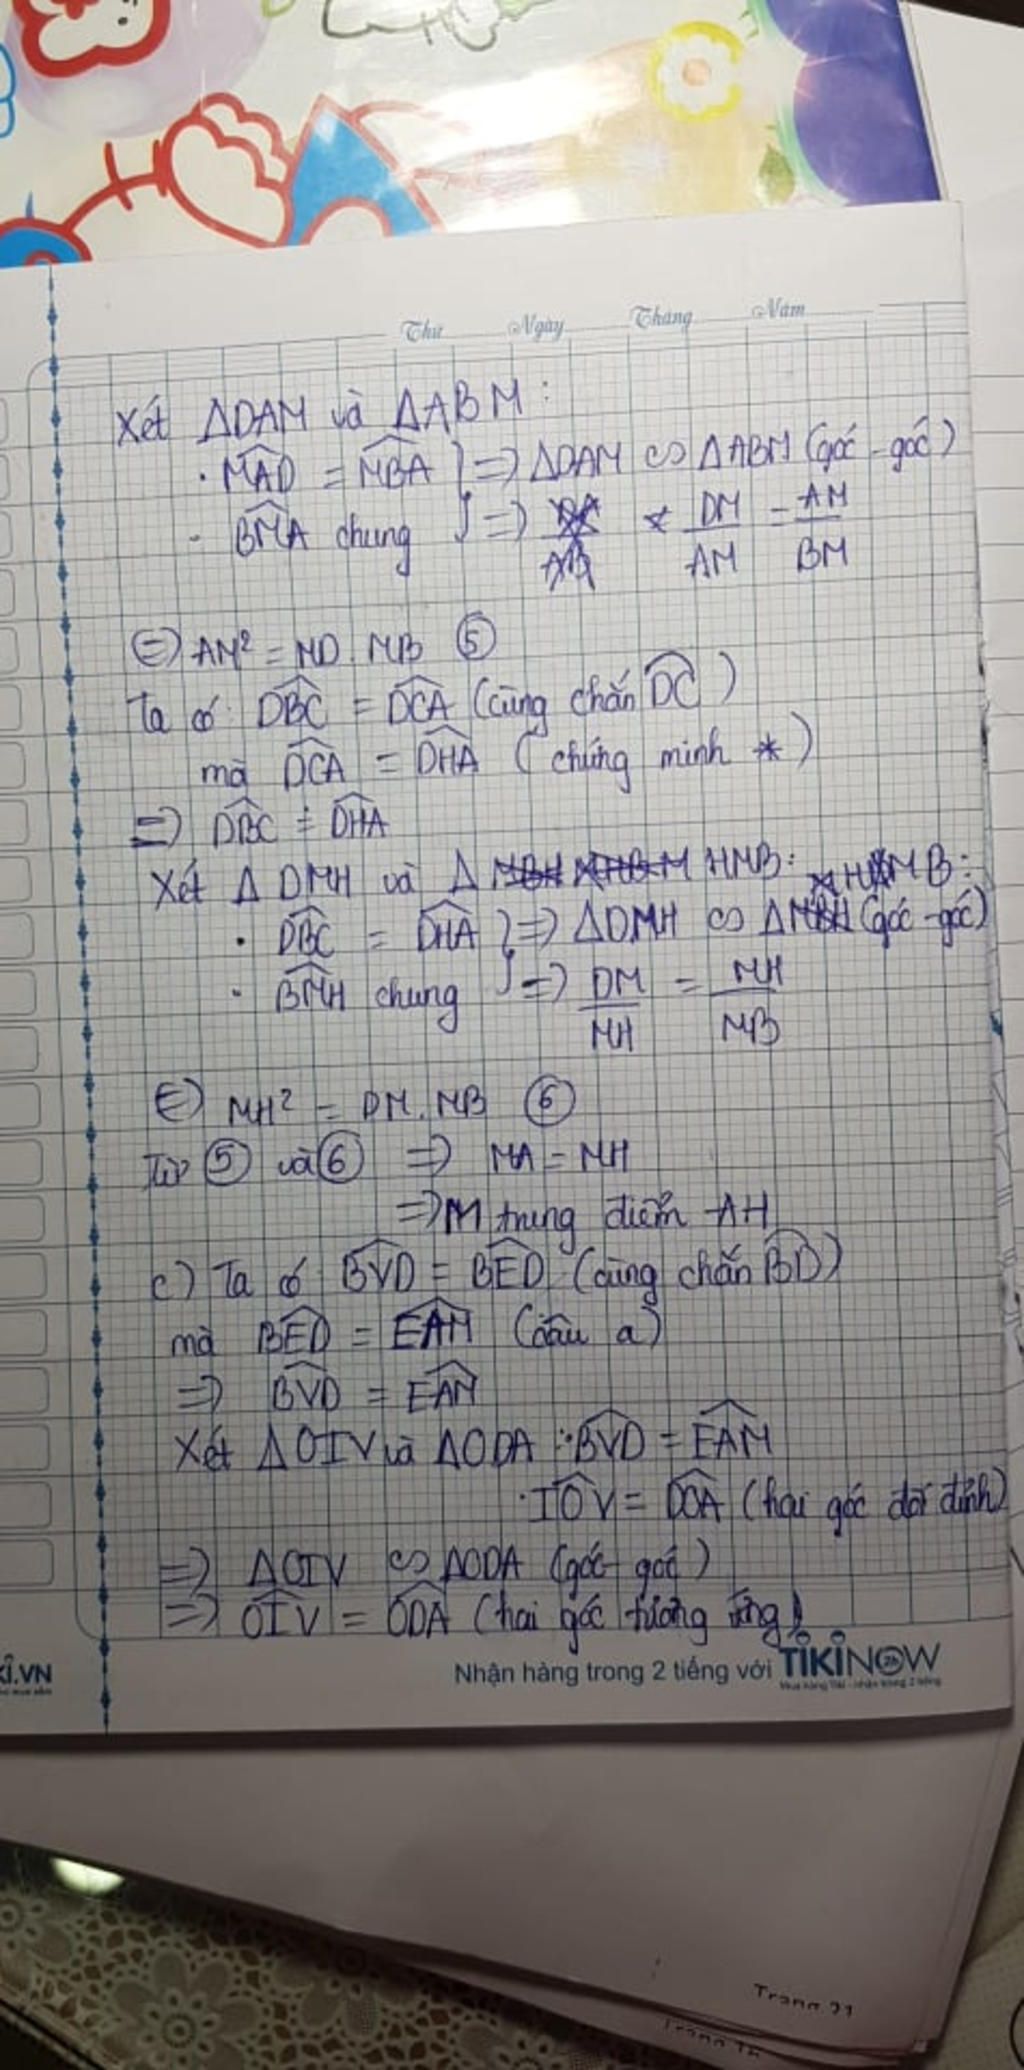 Thứ Ngày Tháng Năm
Xét ΔDAM và ΔABM :
· \widehat{MAD} = \widehat{MBA} } => ΔDAM ∽ ΔABM (góc - góc)
- \widehat{BMA} chung } => DM/AM = AM/BM
<=> AM² = MD . MB ⑤
Ta có: \widehat{DBC} = \widehat{DCA} (cùng chắn \widehat{DC})
mà \widehat{DCA} = \widehat{DHA} (chứng minh *)
=> \widehat{DBC} = \widehat{DHA}
Xét Δ DMH và Δ HMB: HMB:
· \widehat{DBC} = \widehat{DHA} } => ΔDMH ∽ Δ (góc - góc)
· \widehat{BMH} chung } => DM/MH = MH/MB
<=> MH² = DM . MB ⑥
Từ ⑤ và ⑥ => MA = MH
=> M trung điểm AH
c) Ta có \widehat{BVD} = \widehat{BED} (cùng chắn \widehat{BD})
mà \widehat{BED} = \widehat{EAM} (câu a)
=> \widehat{BVD} = \widehat{EAM}
Xét ΔOIV và ΔODA : · \widehat{BVD} = \widehat{EAM}
· \widehat{IOV} = \widehat{DOA} (hai góc đối đỉnh)
=> ΔOIV ∽ ΔODA (góc - góc)
=> \widehat{OIV} = \widehat{ODA} (hai góc tương ứng)
KI.VN
Nhận hàng trong 2 tiếng với TIKINOW
Trang 21
Trang